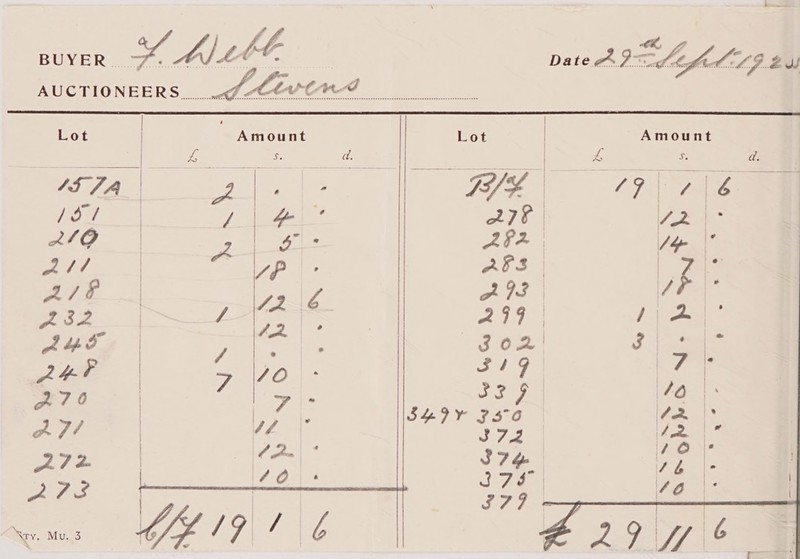 BUYER F. Webb. Date 29th Sept.
AUCTIONEERS Stevens
Lot Amount Lot Amount
£ s. d. £ s. d.
157A 2 . . B/F. 19 1 6
151 1 4 . 278 12 .
210 2 5 . 282 14 .
211 18 . 283 7 .
218 12 6 293 18 .
232 1 12 . 299 1 2 .
245 1 . . 302 3 . .
248 7 10 . 319 7 .
270 7 . 339 10 .
271 11 . 349 & 350 12 .
272 12 . 372 12 .
273 10 . 374 10 .
375 16 .
379 10 .
C/F. 19 1 6 £ 29 11 6
Mu. 3